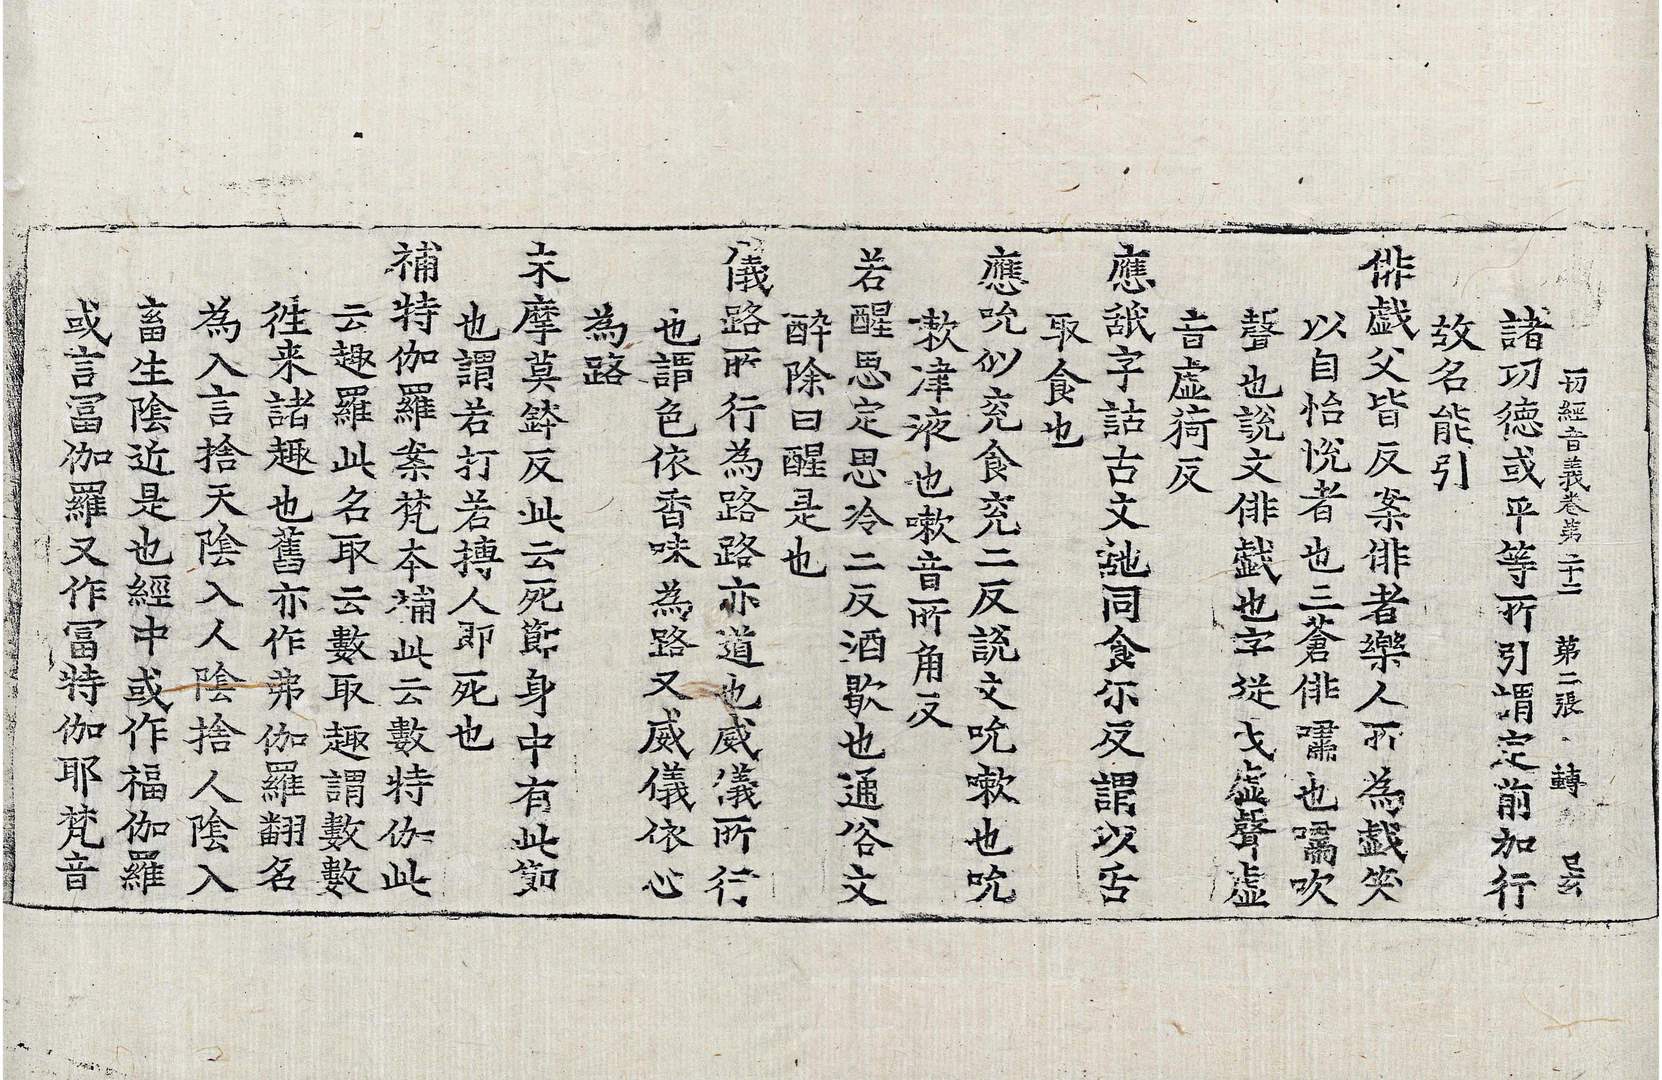 一切經音義卷第二十二 第二張 轉
諸功德或平等所引謂定前加行
故名能引
俳戲父皆反案俳者樂人所為戲笑
以自怡悅者也三蒼俳嚅也嚅吹
聲也說文俳戲也字從戈䖒聲䖒
音虛猗反
應舐字詁古文䑛同食尒反謂以舌
取食也
應吮似兖食兖二反說文吮嗽也吮
欶津液也嗽音所角反
若醒思定思冷二反酒歇也通俗文
醉除曰醒是也
儀路所行為路路亦道也威儀所行
也謂色依香味為路又威儀依心
為路
末摩莫鉢反此云死節身中有此節
也謂若打若搏人即死也
補特伽羅案梵本補此云數特伽此
云趣羅此名取云數取趣謂數數
徃来諸趣也舊亦作弗伽羅翻名
為入言捨天陰入人陰捨人陰入
畜生陰近是也經中或作福伽羅
或言冨伽羅又作冨特伽耶梵音